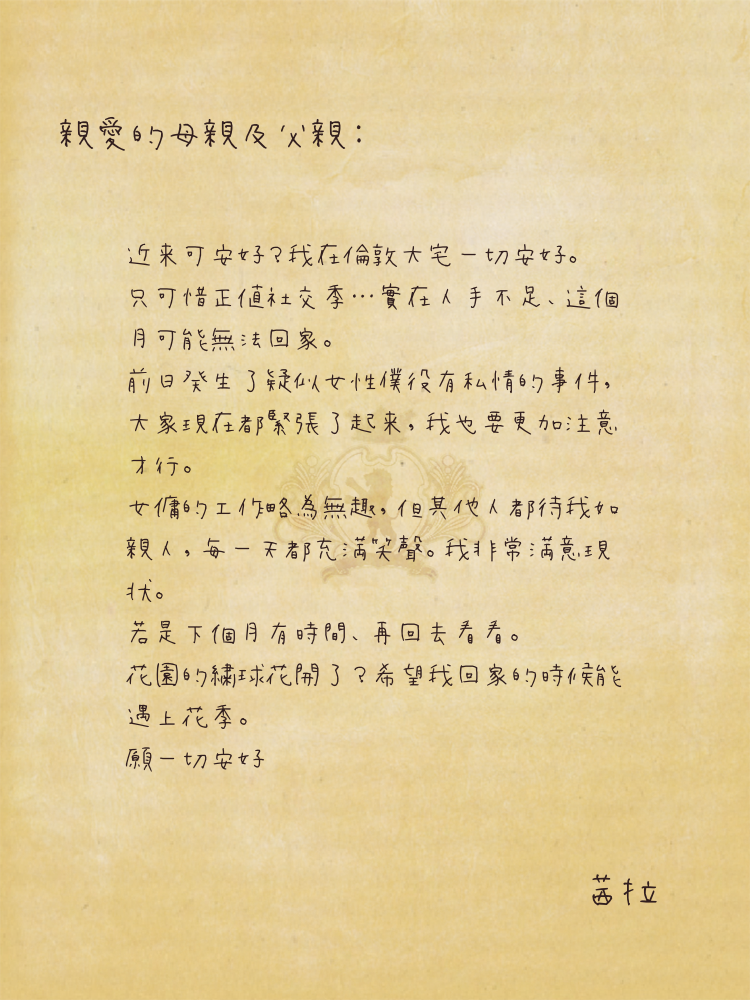 親愛的母親及父親：
近来可安好？我在倫敦大宅一切安好。
只可惜正值社交季…實在人手不足、這個
月可能無法回家。
前日発生了疑似女性僕役有私情的事件，
大家現在都緊張了起来，我也要更加注意
才行。
女傭的工作略為無趣，但其他人都待我如
親人，每一天都充滿笑聲。我非常滿意現
状。
若是下個月有時間、再回去看看。
花園的繡球花開了？希望我回家的時候能
遇上花季。
願一切安好
茜拉